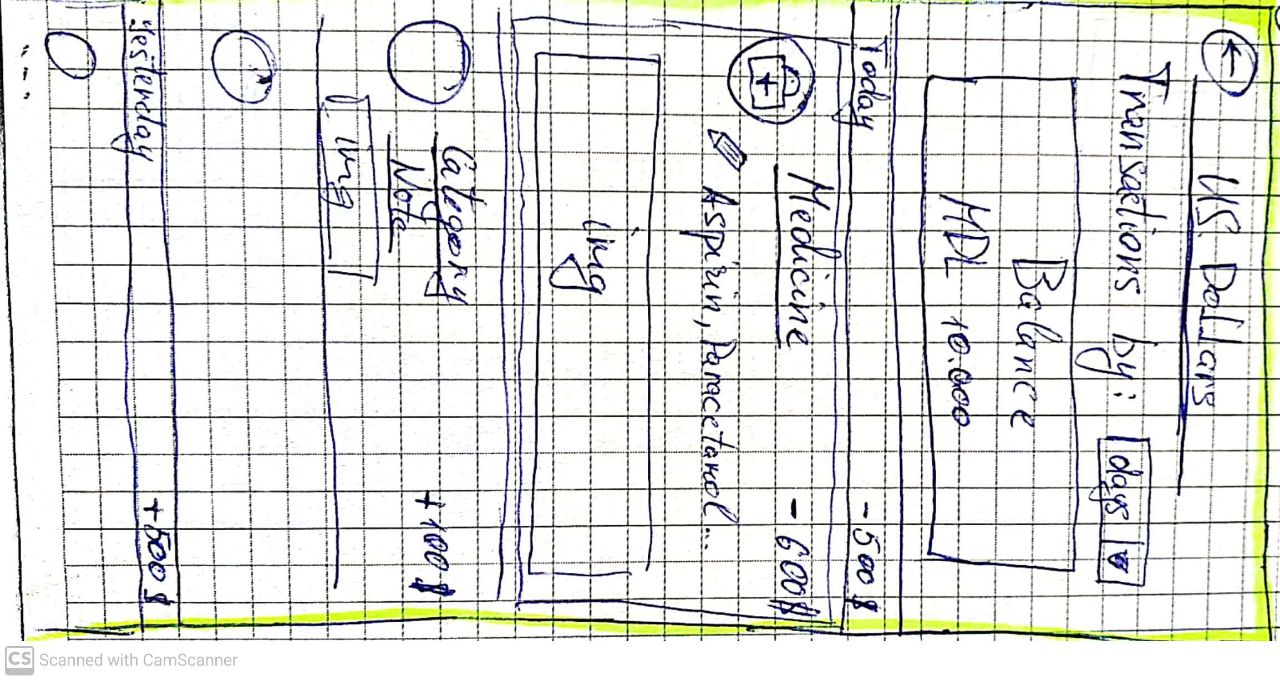 ←
US. Dollars
Transactions by: days
Balance
MDL 10.000
Today -500$
Medicine -600$
Aspirin, Paracetamol...
img
Category +100$
Note
img
Yesterday +500$
CS Scanned with CamScanner